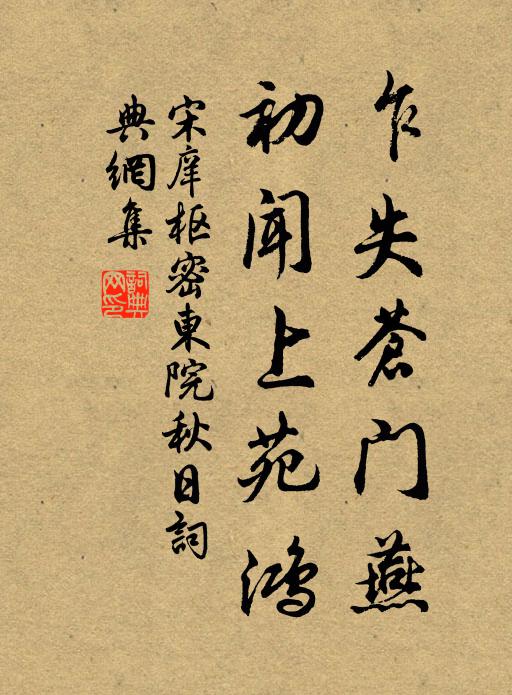 乍失苍门燕
初闻上苑鸿
宋庠枢密东院秋日词
典网集
词典
网印